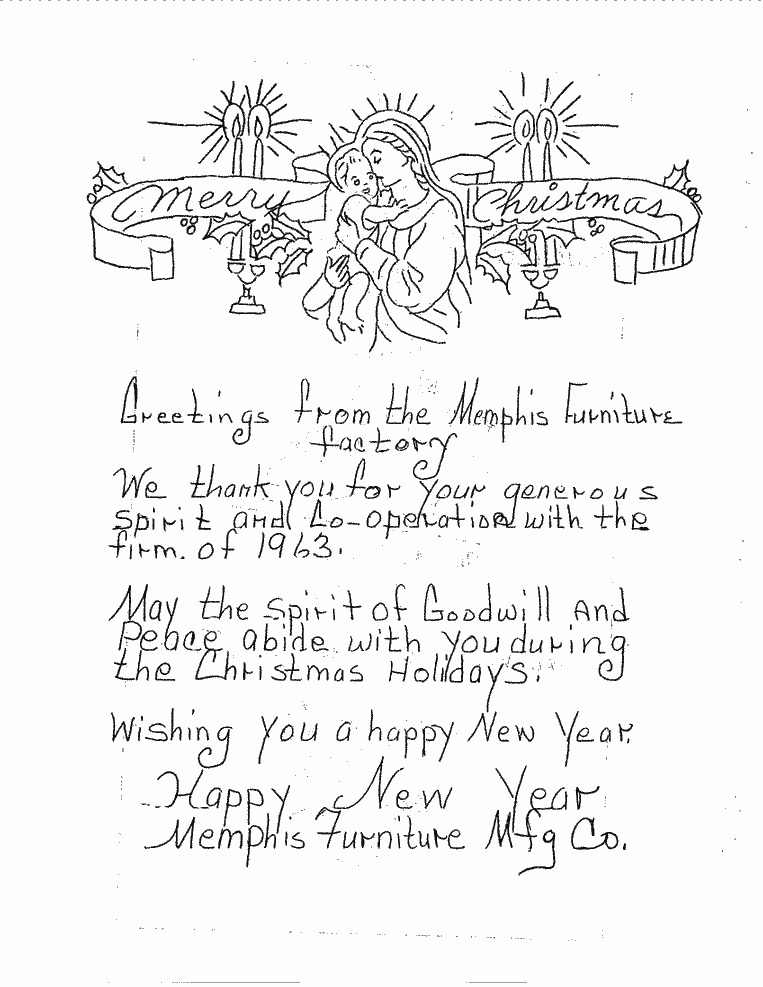 Merry Christmas
Greetings from the Memphis Furniture
factory
We thank you for your generous
spirit and Co-operation with the
firm. of 1963.
May the spirit of Goodwill And
Peace abide with you during
the Christmas Holidays.
Wishing you a happy New Year.
Happy New Year
Memphis Furniture Mfg Co.